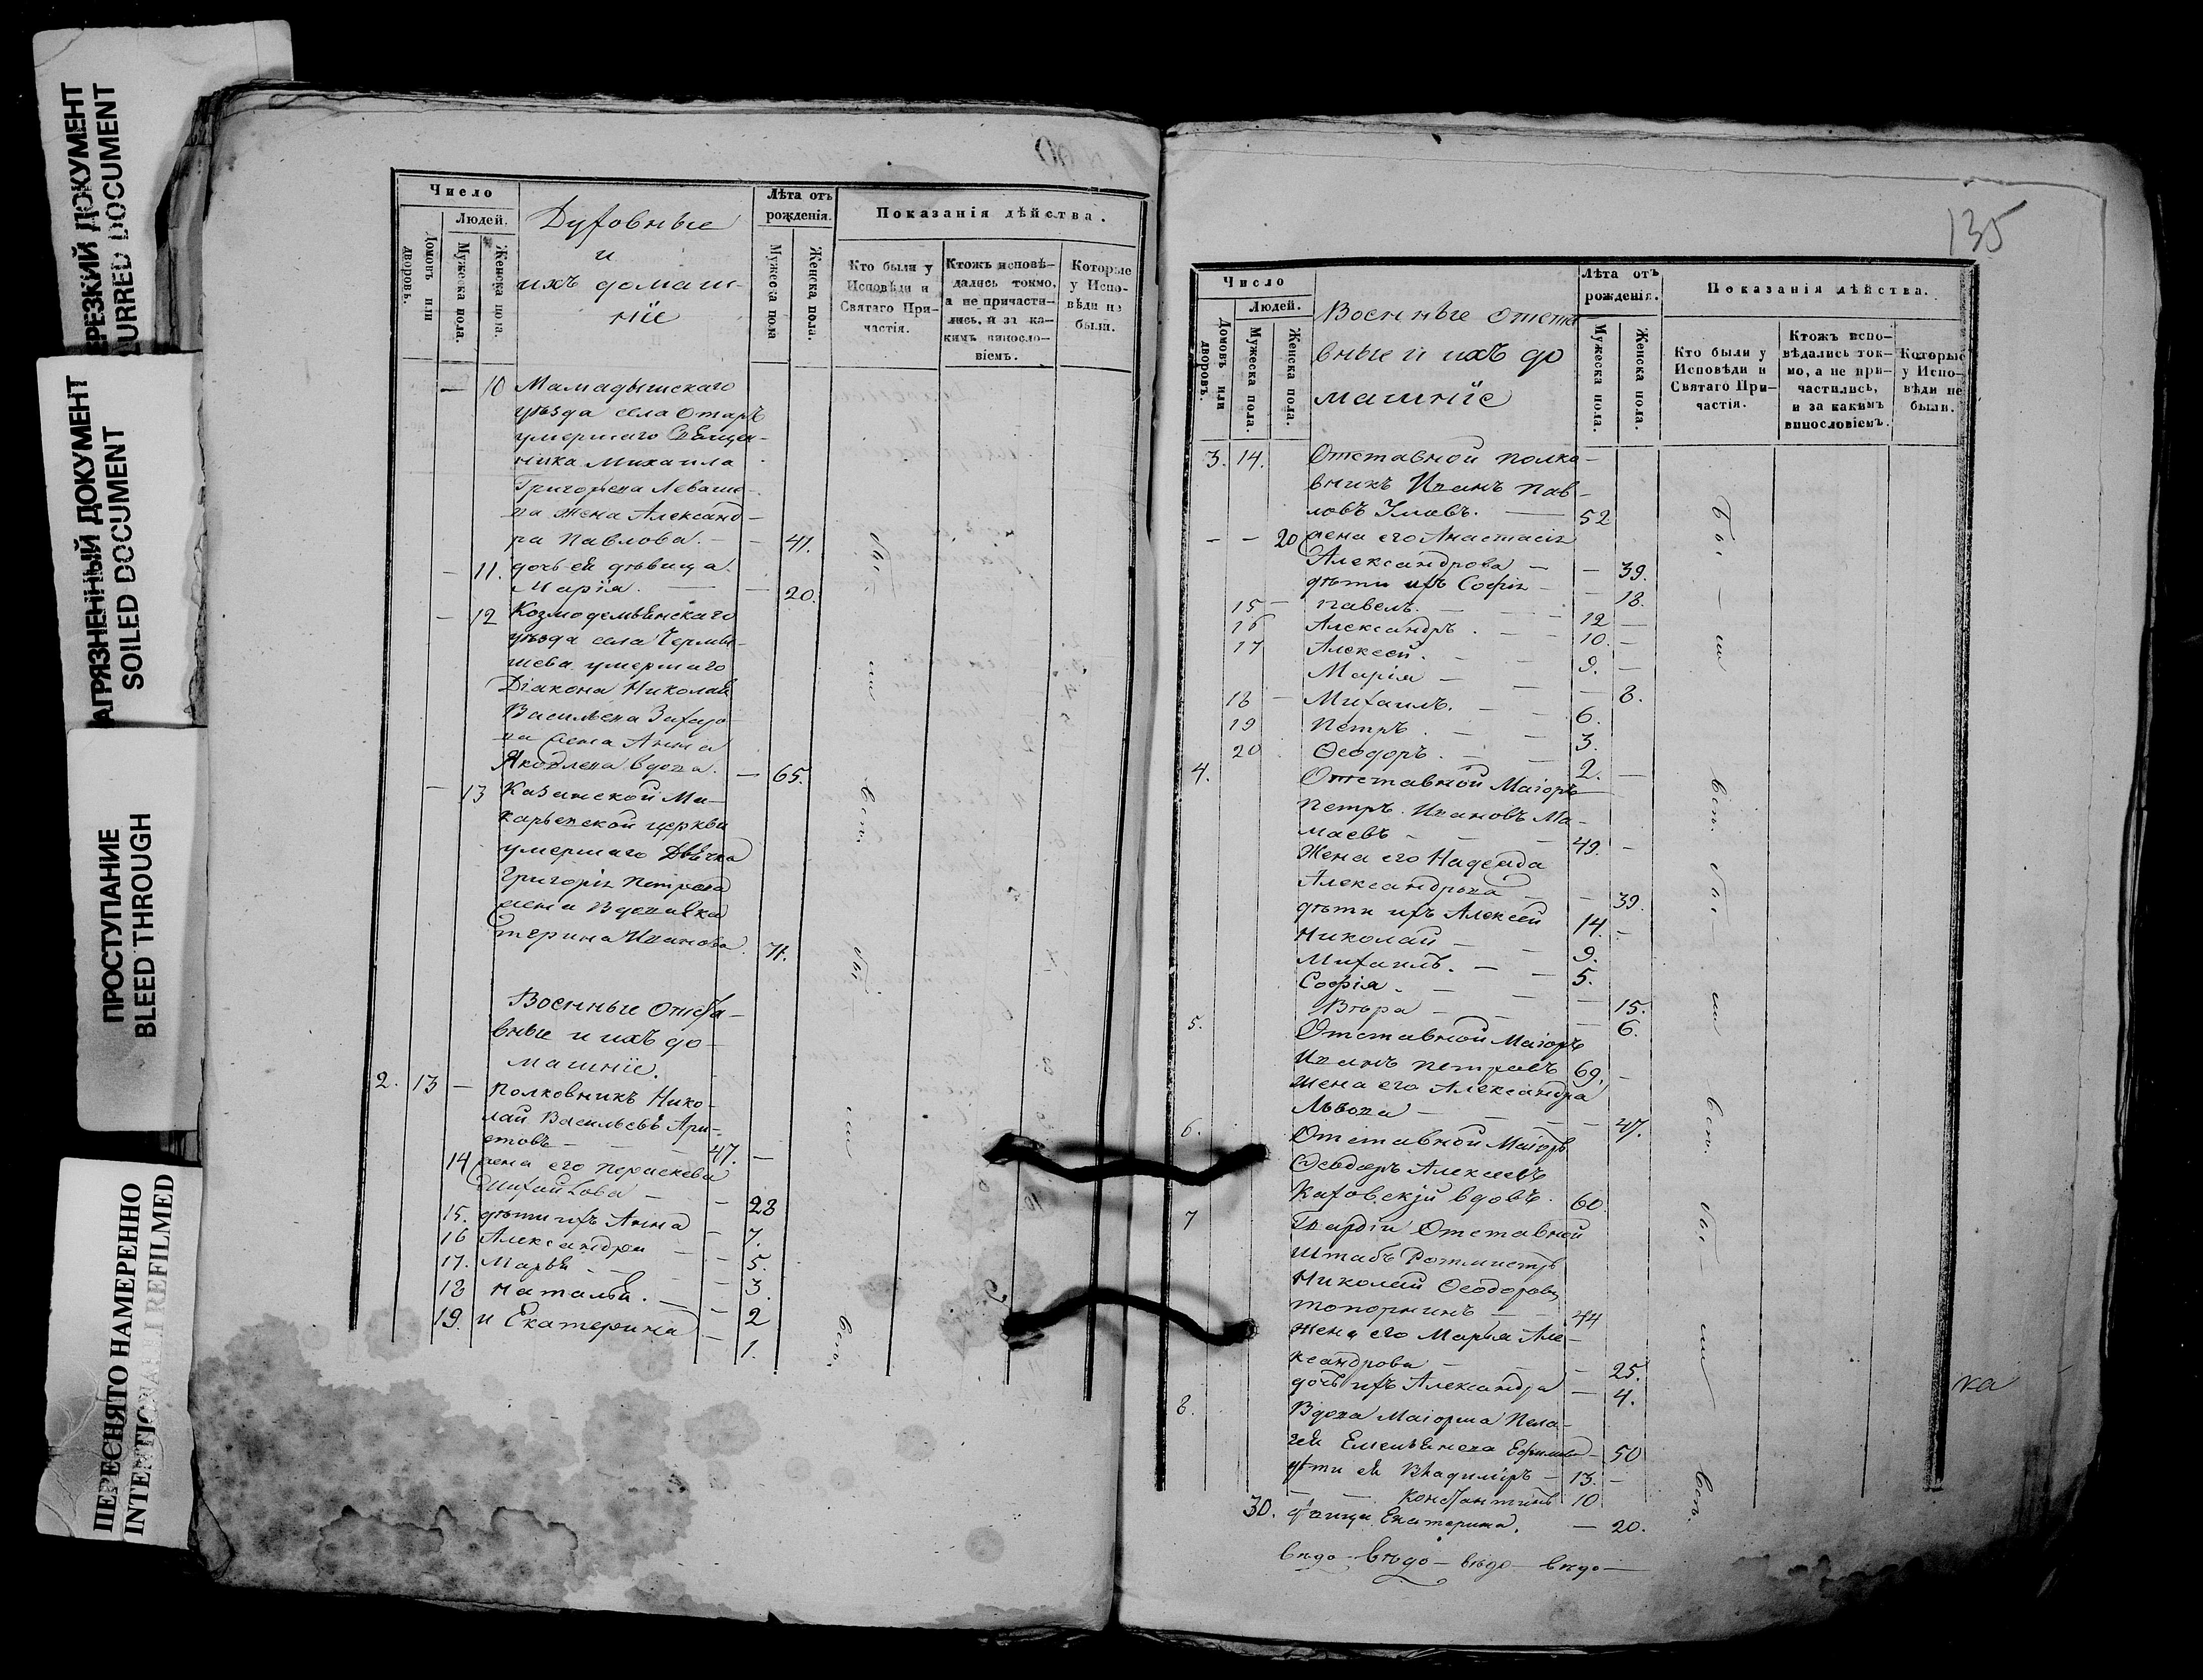 ПРОСТУПАНИЕ
BLEED THROUGH
АГРЯЗНЕННЫЙ ДОКУМЕНТ
SOILED DOCUMENT
РЕЗКИЙ ДОКУМЕНТ
URRED DOCUMENT
ПЕРЕСНЯТО НАМЕРЕННО
INTENTIONALLY REFILMED
Число
Людей.
Домовъ или дворовъ.
Мужеска пола.
Женска пола.
Духовные
и
ихъ домаш-
ніе
Лѣта отъ
рожденія.
Мужеска пола
Женска пола.
Показанія дѣйства.
Кто были у
Исповѣди и
Святаго При-
частія.
Ктожъ исповѣ-
дались токмо,
а не причасти-
лись, и за ка-
кимъ винослo-
віемъ.
Которые
у Испо-
вѣди не
были.
— 10 Мамадышскаго
уѣзда села Отаръ
умершаго Священ-
ника Михаила
Григорьева Леваше-
ва жена Александ-
ра Павлова. — — 41.
— 11. дочь ея дѣвица
Марія. — — 20.
— 12 Козмодемьянскаго
уѣзда села Чермы-
шева умершаго
Діакона Николая
Васильева Захаро
ва жена Анна
Яковлева вдова. — 65.
— 13 Казанской Ма-
карьевской церкви
умершаго Дьячка
Григорія Петрова
жена Вдова Ека
терина Иванова 71.
Военные Отста-
вные и ихъ до-
машніе.
2. 13 — Полковникъ Нико-
лай Васильевъ Ари-
стовъ — — 47. —
14 жена его Параскева
Михайлова — — 28
15. дѣти ихъ Анна — 7.
16 Александра — — 5.
17. Марья — — 3
18 Наталья. — — 2
19. и Екатерина — 1.
Бы
ли
Вст.
Бы
ли
Вст.
135
Число
Людей.
Домовъ или дворовъ.
Мужеска пола.
Женска пола.
Военные отста
вные и ихъ до
машніе
Лѣта отъ
рожденія.
Мужеска пола.
Женска пола.
Показанія дѣйства.
Кто были у
Исповѣди и
Святаго При-
частія.
Ктожъ испо-
вѣдались ток-
мо, а не при-
частились,
и за какимъ
винословіемъ.
Которые
у Испо-
вѣди не
были.
3. 14. Отставной полко-
вникъ Иванъ Пав-
ловъ — 52
— — 20 жена его Анастасія
Александрова — — 39.
дѣти ихъ Софія — — 18.
15 — Павелъ. — — 12 —
16 Александръ. — — 10. —
17 Алексей. — — 9. —
Марія — — — 8.
18 — Михаилъ. — — 6.
19 Петръ. — — 3.
20 Ѳеодоръ. — — 2. —
4. Отставной Маіоръ
Петръ Ивановъ Ма-
маевъ — — 49. —
Жена его Надежда
Александрова — — 39.
дѣти ихъ Алексей 14. —
Николай — — 9.
Михаилъ. — — 5.
Софія. — — — 15.
Вѣра — — — 6.
5. Отставной Маіоръ
Иванъ Петровъ 69. —
жена его Александра
Львова — — — 47.
6. Отставной Маіоръ
Ѳеодоръ Алексеевъ
Каховскій вдовъ. 60
7 Гвардіи Отставной
Штабъ Ротмистръ
Николай Ѳеодоровъ
Топорнинъ — 44
жена его Марья Але-
ксандрова — — — 25.
дочь ихъ Александра — 4.
8. Вдова Маіорша Пела-
гея Емельянова — 50
дѣти ея Владиміръ — 13. —
— — Константинъ 10
30. Екатерина. — 20.
Бы — ли
вст.
Бы — ли
вст.
Бы — ли
вст.
ка